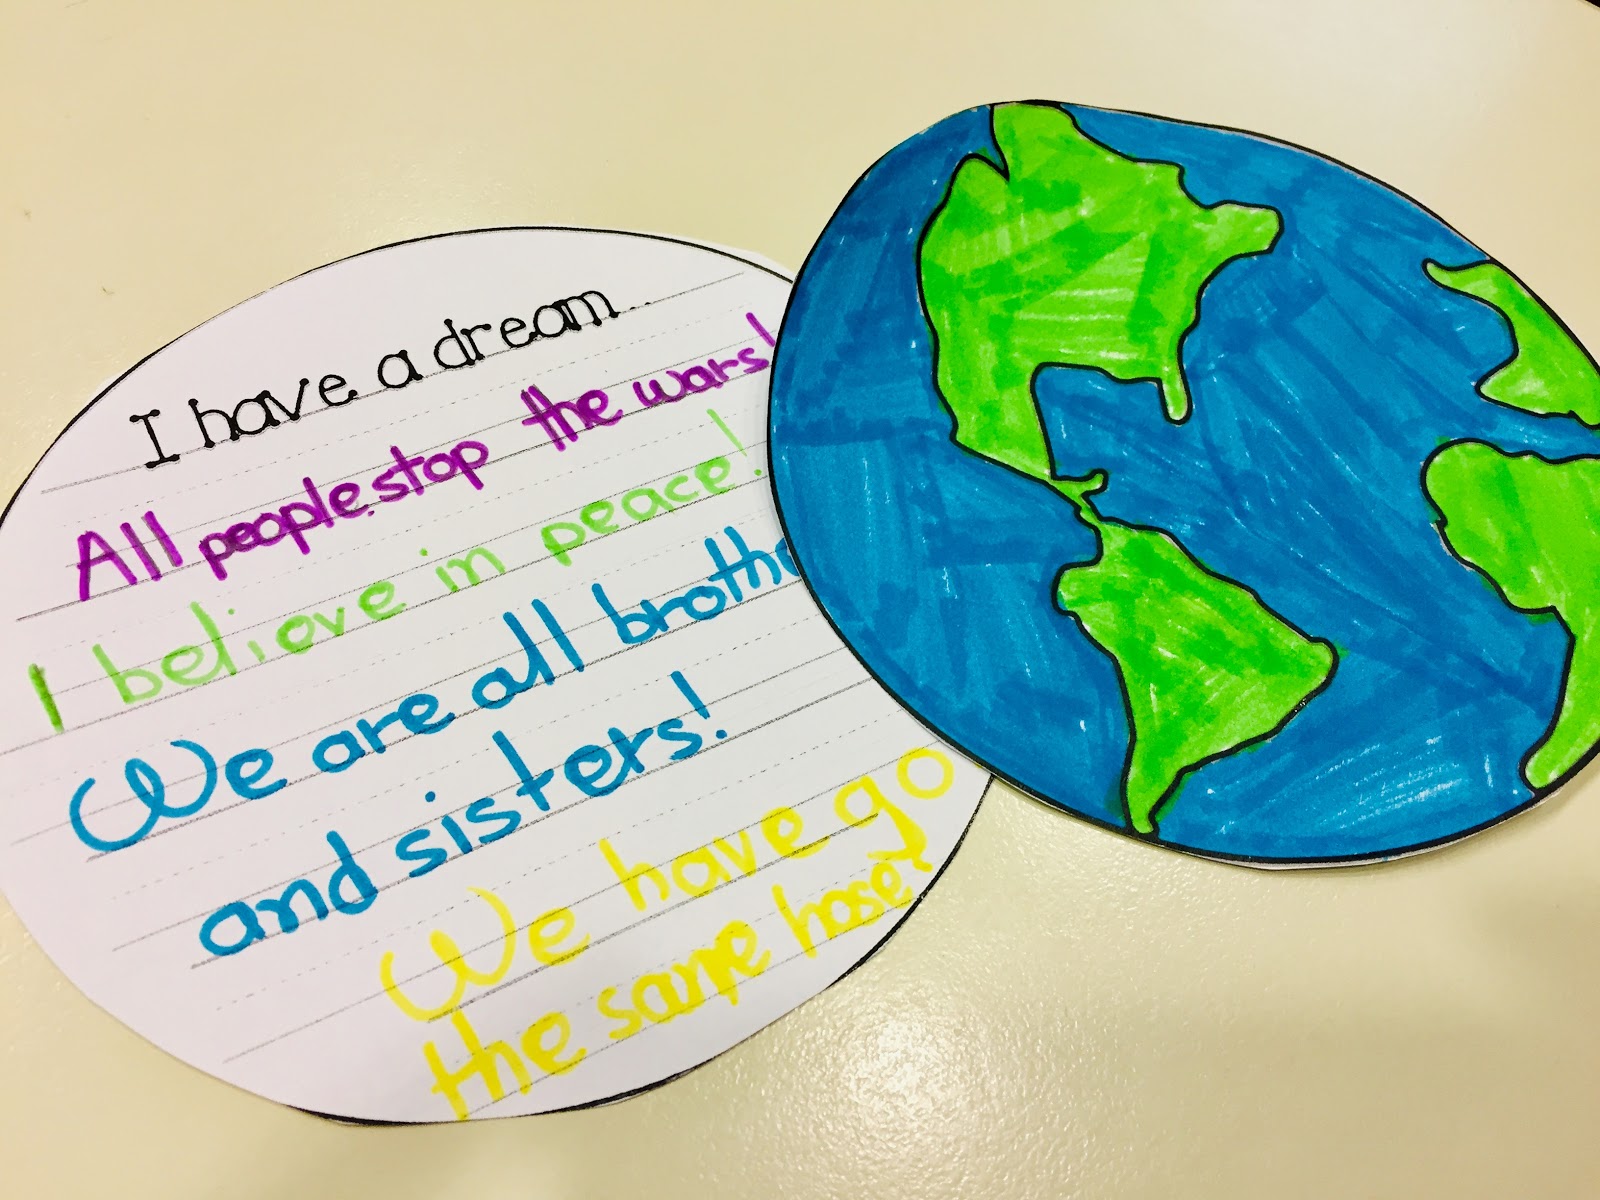 I have a dream...
All people stop the wars!
I believe in peace!
We are all brothe
and sisters!
We have go
the same hose!